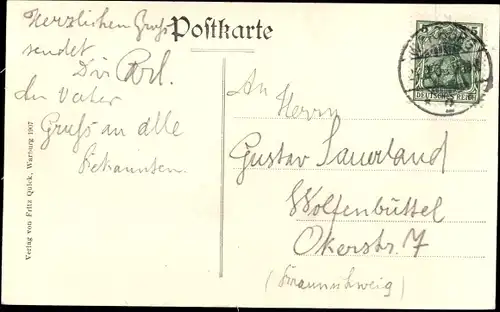 Postkarte
Herzlichen Gruß
sendet
Dir
Gruß an alle
Bekannten.
Verlag von Fritz Quick, Warburg 1907
An Herrn
Gustav Sauerland
Wolfenbüttel
Okerstr. 7
(Braunschweig)
DEUTSCHES REICH